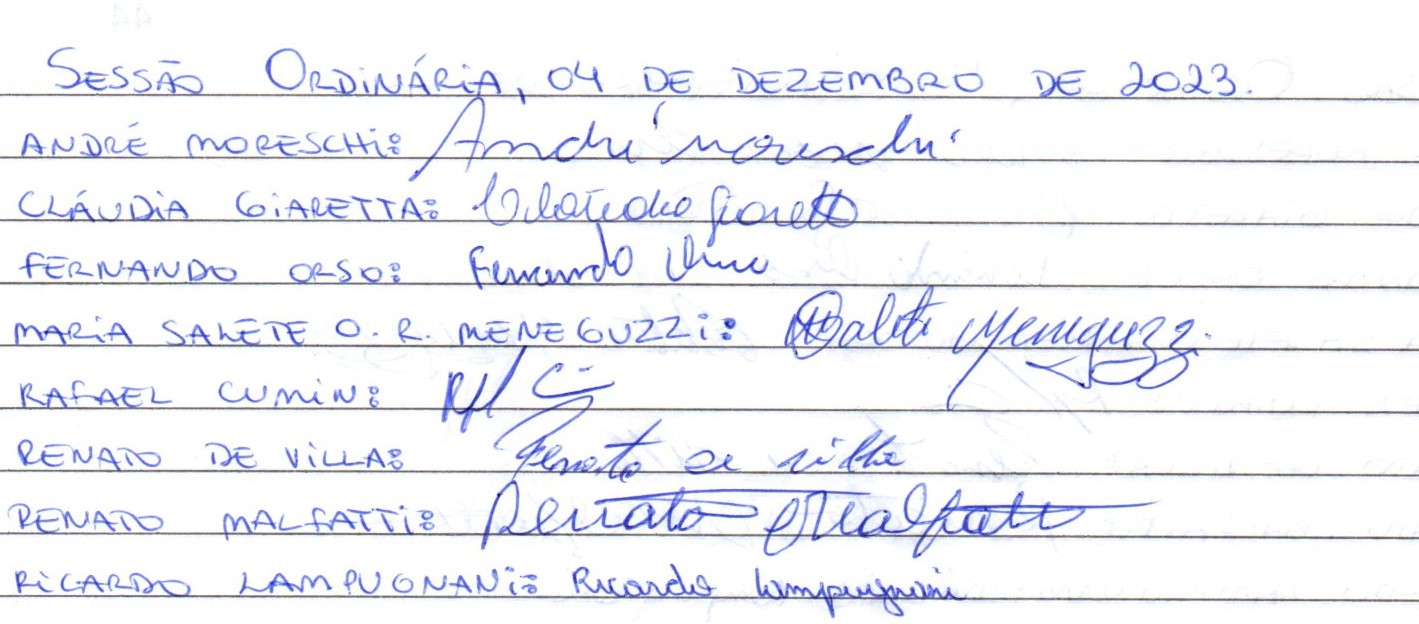 SESSÃO ORDINÁRIA, 04 DE DEZEMBRO DE 2023.
ANDRÉ MORESCHI: André Moreschi
CLÁUDIA GIARETTA: Cláudia Giaretta
FERNANDO ORSO: Fernando Orso
MARIA SALETE O. R. MENEGUZZI: Salete Meneguzzi
RAFAEL CUMIN:
RENATO DE VILLA: Renato de Villa
RENATO MALFATTI: Renato Malfatti
RICARDO LAMPUGNANI: Ricardo Lampugnani